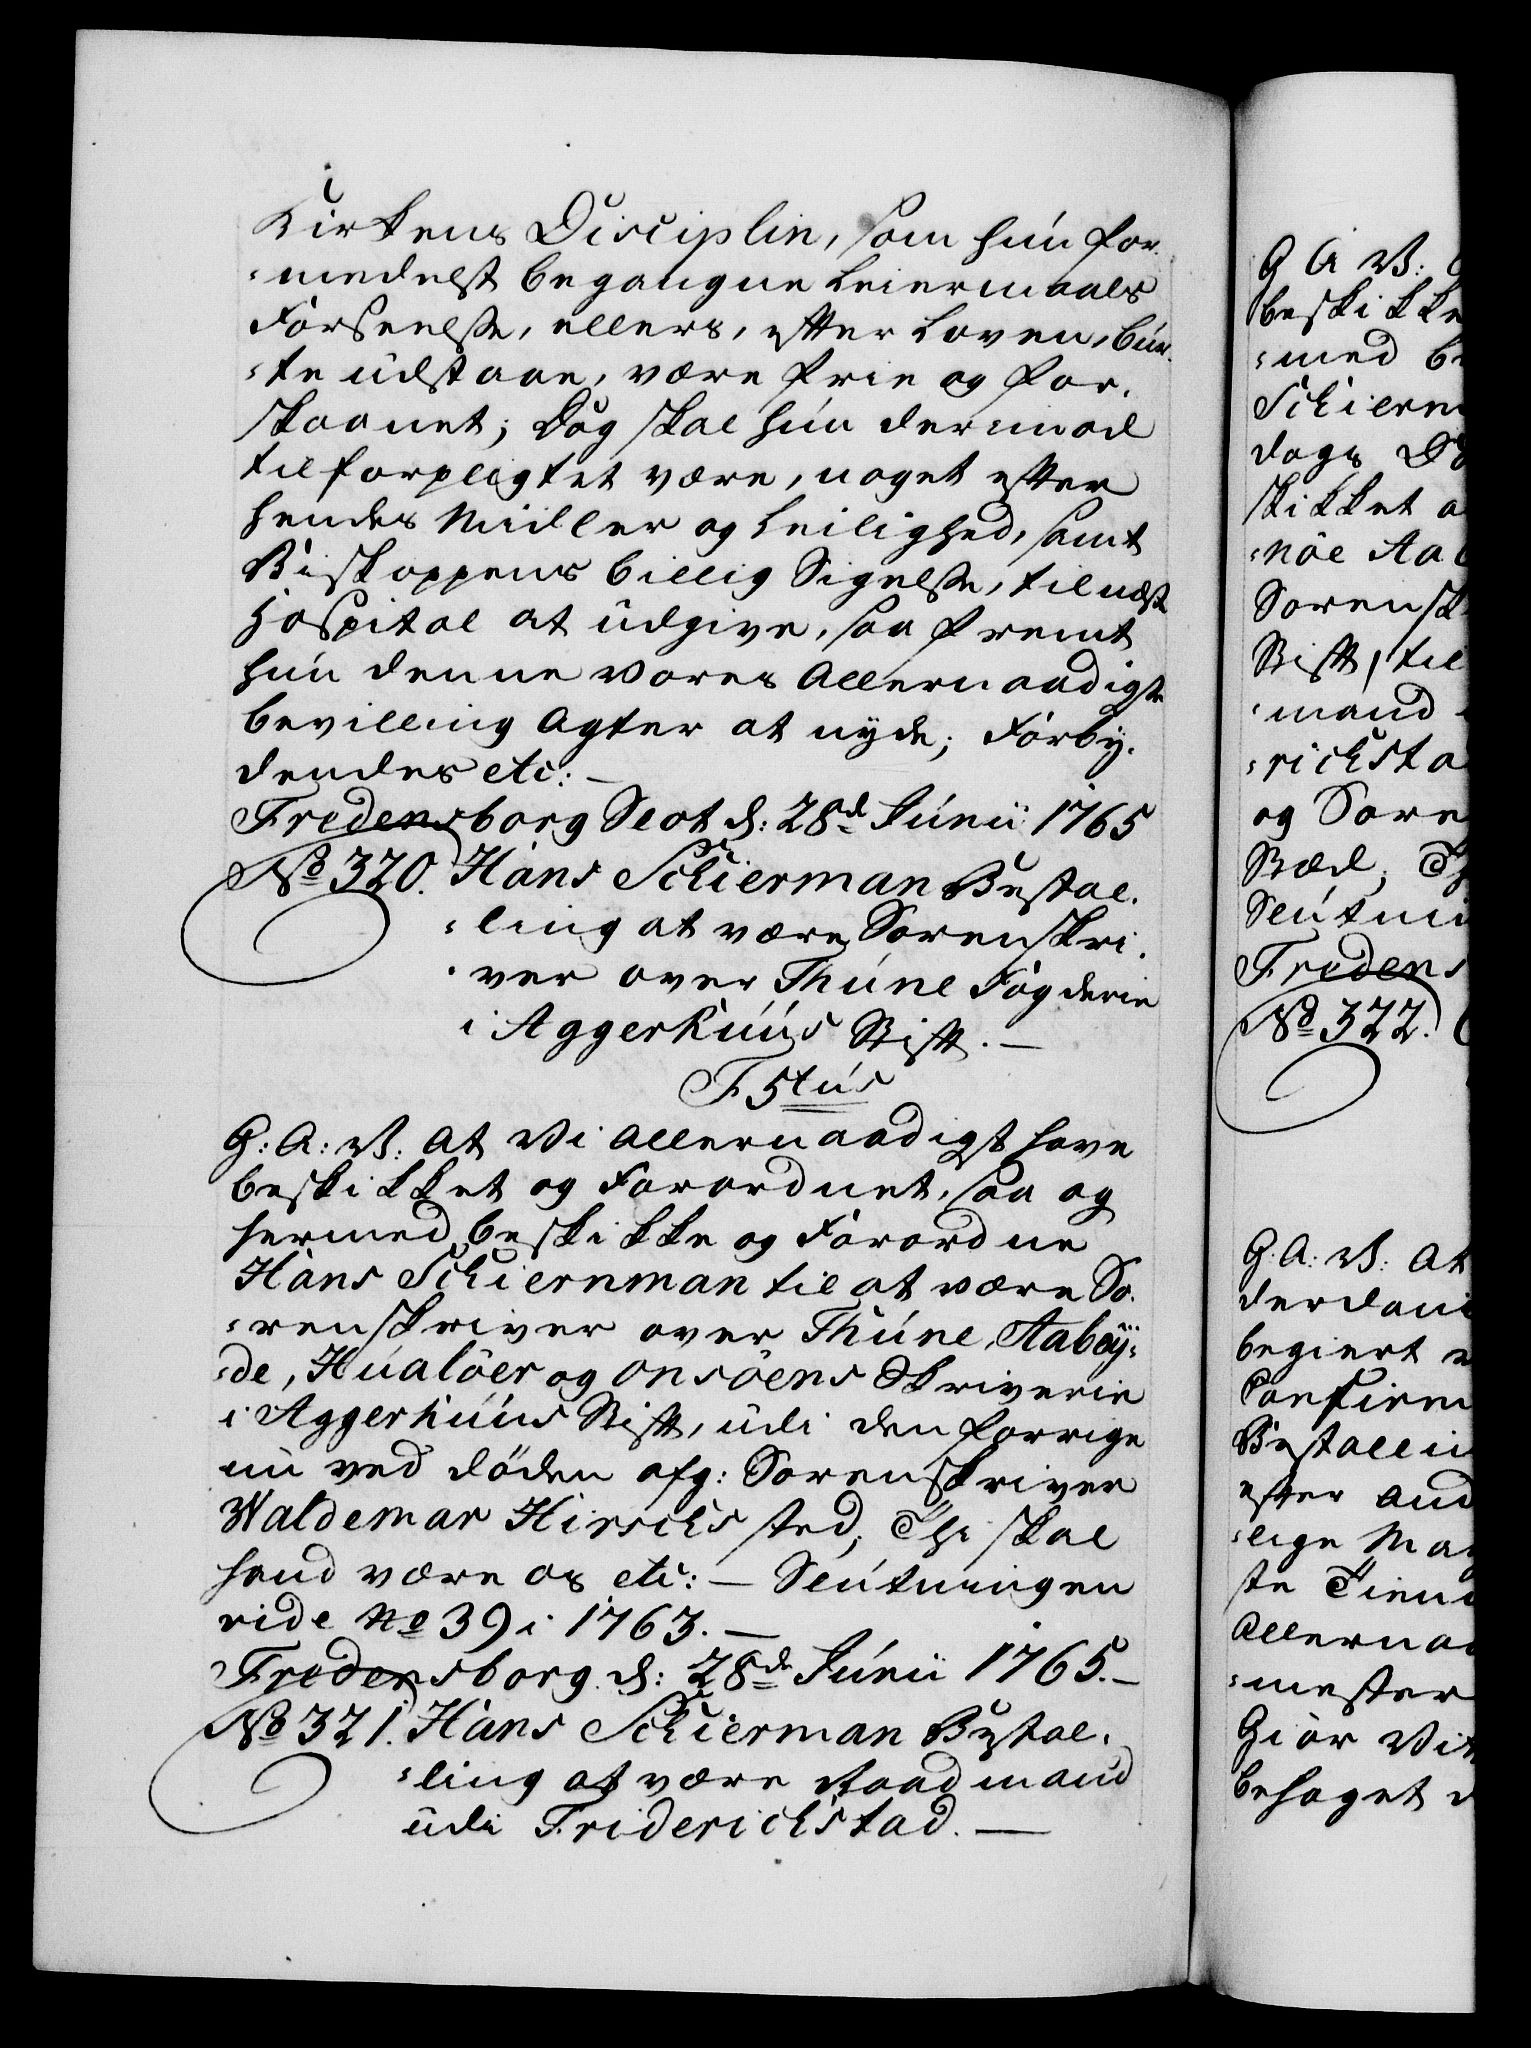 Kirkens Disciplin, som hun for-
-medelst begangne Leiermaals
Forseelse, ellers, efter Loven, bur-
-te udstaae, være frie og for-
skaanet; Dog skal hun derimod
tilforpligtet være, noget efter
hendes Midler og Leilighed, samt
Biskoppens billig Sigelse, til næste
Hospital at udgive, saa fremt
hun denne Vores Allernaadigste
bevilling Agter at nyde; Forby-
dendes etc: —
Fredensborg Slot d: 28de Junii 1765
No 320. Hans Schierman Bestal-
-ling at være Sorenskri-
-ver over Thune Fogderie
i Aggerhuus Stift. —
F. 5tus
G: A: V: At Vi Allernaadigst have
beskikket og Forordnet, saa og
hermed beskikke og Forordne
Hans Schiernman til at være So-
-renskriver over Thune, Aabøy-
-de, Hualöer og Onsöens Skriverie
i Aggerhuus Stift, udi den forrige
nu ved döden afg: Sorenskriver
Waldemar Hirschs sted; Thi skal
hand være os etc: — Slutningen
vide No 39 i 1763. —
Fredensborg d: 28de Junii 1765. —
No 321. Hans Schierman Bestal-
-ling at være Raadmand
udi Friderichstad. —
G A V:
beskikke
-med be
Schierm
dags D
skikket a
-nöe Aab
Sorensk
Stift, til
-mand
-richsta
og Sore
Sted; Th
Slutni
Fredens
No 322.
G: A: V: At
derdani
begiert
Confirm
Bestalli
efter And
-lige Ma
ste Tien
Allernaa
-mester
Giör Vit
behaget d